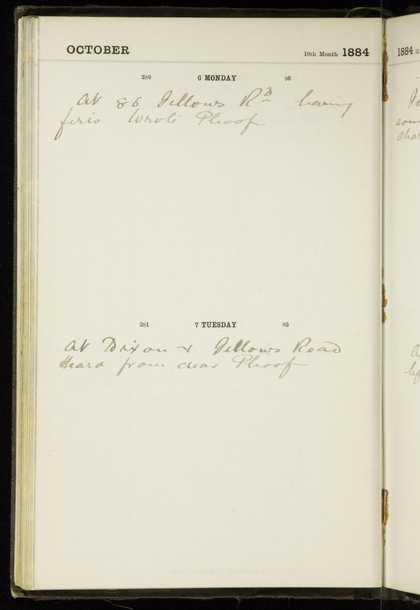 OCTOBER 10th Month 1884
280 6 MONDAY 86
At 86 Fellows Rd having
fires wrote Phoof
281 7 TUESDAY 85
At Dixon & Fellows Road
Heard from dear Phoof
1884